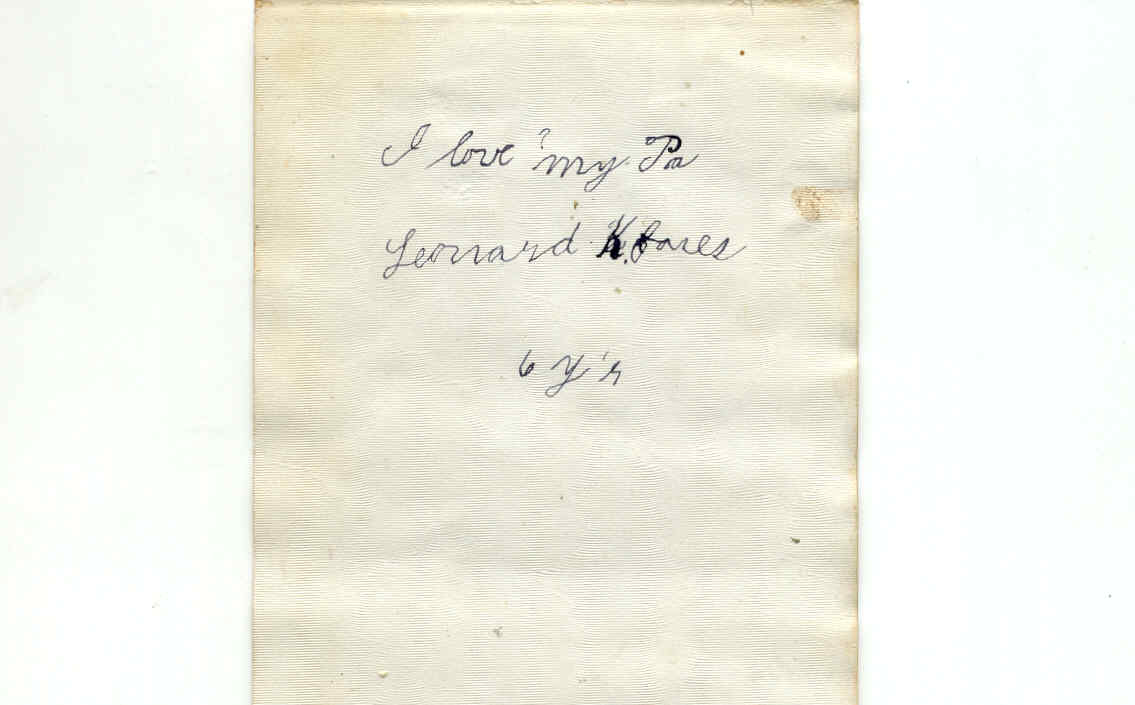 I love my Pa
Leonard K.
6 y's